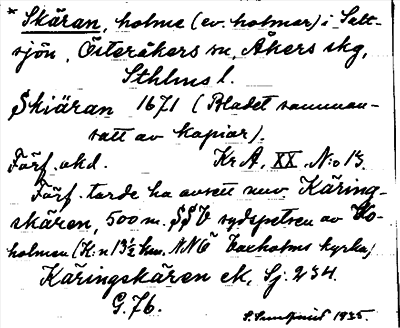 * Skäran, holme (ev. holmar) i Salt-
sjön, Österåkers sn, Åkers skg,
Sthlms l.
Skiäran 1671 (Bladet samman-
satt av kopior).
Förf. okd. Kr A, XX, N:o 13.
Förf. torde ha avsett nuv. Käring-
skären, 500 m. SSV sydspetsen av
holmen (K:n 13½ km. NNÖ Vaxholms kyrka)
Käringskären eK, Sj. 234.
G. 76.
1935.